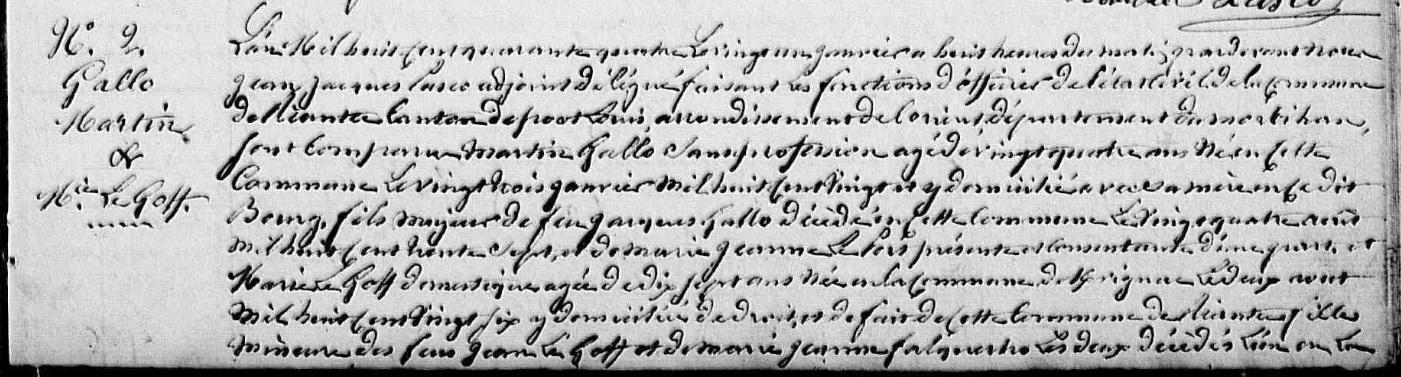 N.° 2.
Gallo
Martin
&
M.ie Le Goff.
L'an Mil huit cent quarante quatre Le vingt un janvier a huit heures du matin, pardevant nous
jean jacques adjoint délégué faisant les fonctions d'officier de l'état Civil de la Commune
de Riantec Canton de port Louis, arrondissement de Lorient, département du morbihan,
sont Comparus Martin Gallo Sans profession agé de vingt quatre ans Né en cette
Commune Le vingt trois janvier Mil huit cent vingt et y domicilié avec sa mère en ce dit
Bourg, fils majeur de feu jacques Gallo décédé en cette Commune Le vingt quatre aout
Mil huit cent trente Sept, et de marie jeanne présente et consentante d'une part, et
Marie Le Goff domestique agée de dix sept ans Née en la Commune de Le deux aout
Mil huit cent vingt six y domiciliée de droit, et de fait de cette Commune de Riantec fille
mineure des feus jean Le Goff et de marie jeanne Les deux décédés L'un en La